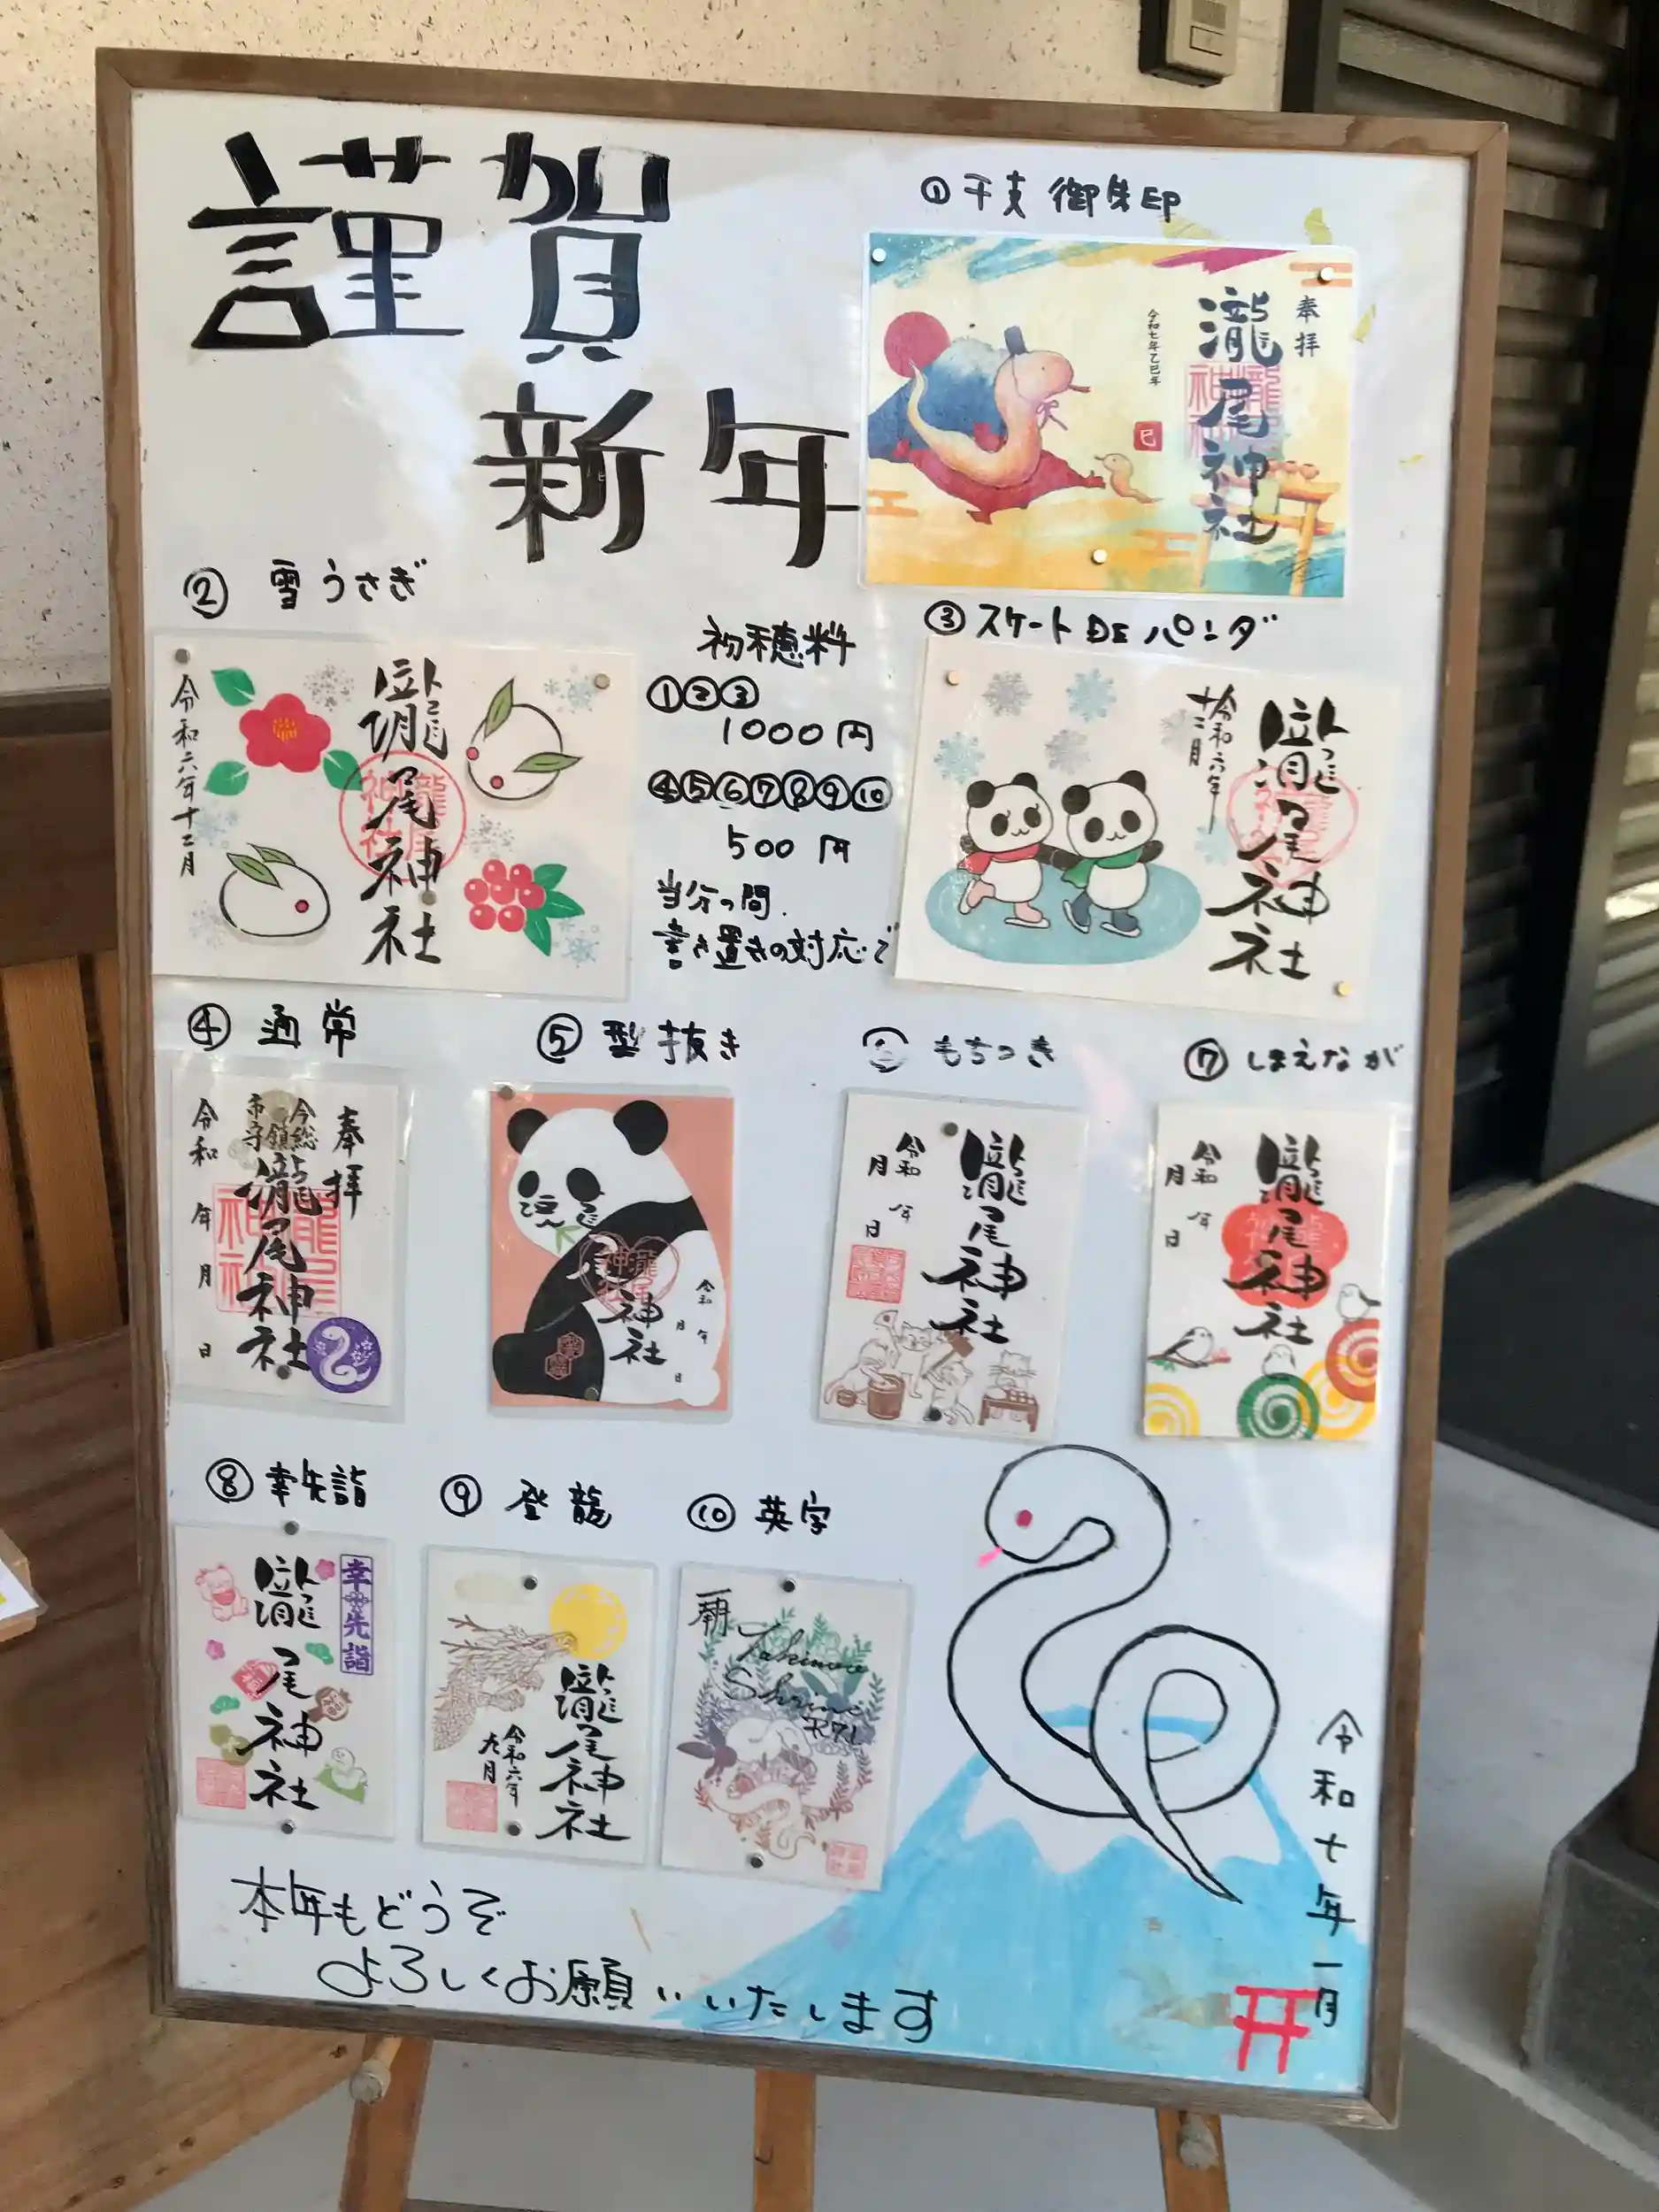 謹賀
新年
①干支 御朱印
奉拝
瀧尾神社
令和七年乙巳年
巳
②雪うさぎ
瀧尾神社
令和六年十二月
初穂料
①②③
1000円
④⑤⑥⑦⑧⑨⑩
500円
当分の間.
書き置きの対応で
③スケートDEパンダ
瀧尾神社
令和六年
十二月
④通常
奉拝
今市総鎮守
瀧尾神社
令和 年 月 日
⑤型抜き
瀧尾神社
令和 年
月 日
もちつき
瀧尾神社
令和 年
月 日
⑦しまえなが
瀧尾神社
令和 年
月 日
⑧幸先詣
幸先詣
瀧尾神社
⑨登龍
瀧尾神社
令和六年
九月
⑩英字
Takinoo
Shrine
R7.1
令和七年一月
本年もどうぞ
よろしくお願いいたします